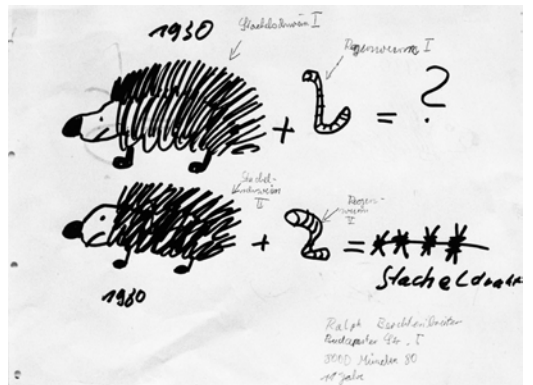 1930
Stachelschwein I
Regenwurm I
+ = ?
Stachel-
schwein
II
Regen-
wurm
+ =
Stacheldraht
1980
Ralph
8000 München 80
11 Jahre